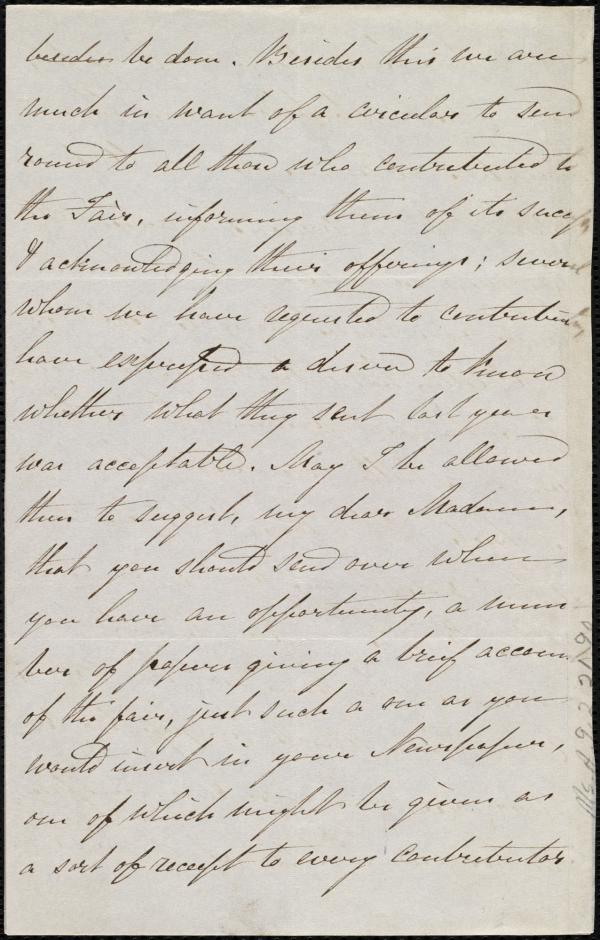 besides be done. Besides this we are
much in want of a circular to send
round to all those who contributed to
the Fair, informing them of its succ
& acknowledging their offerings; several
whom we have requested to contribute
have expressed a desire to know
whether what they sent last year
was acceptable. May I be allowed
then to suggest, my dear Madam,
that you should send over when
you have an opportunity, a num
ber of papers giving a brief account
of the fair, just such a one as you
would insert in your Newspaper,
one of which might be given as
a sort of receipt to every contributor
Ms. A. 9. 2. 21. 90